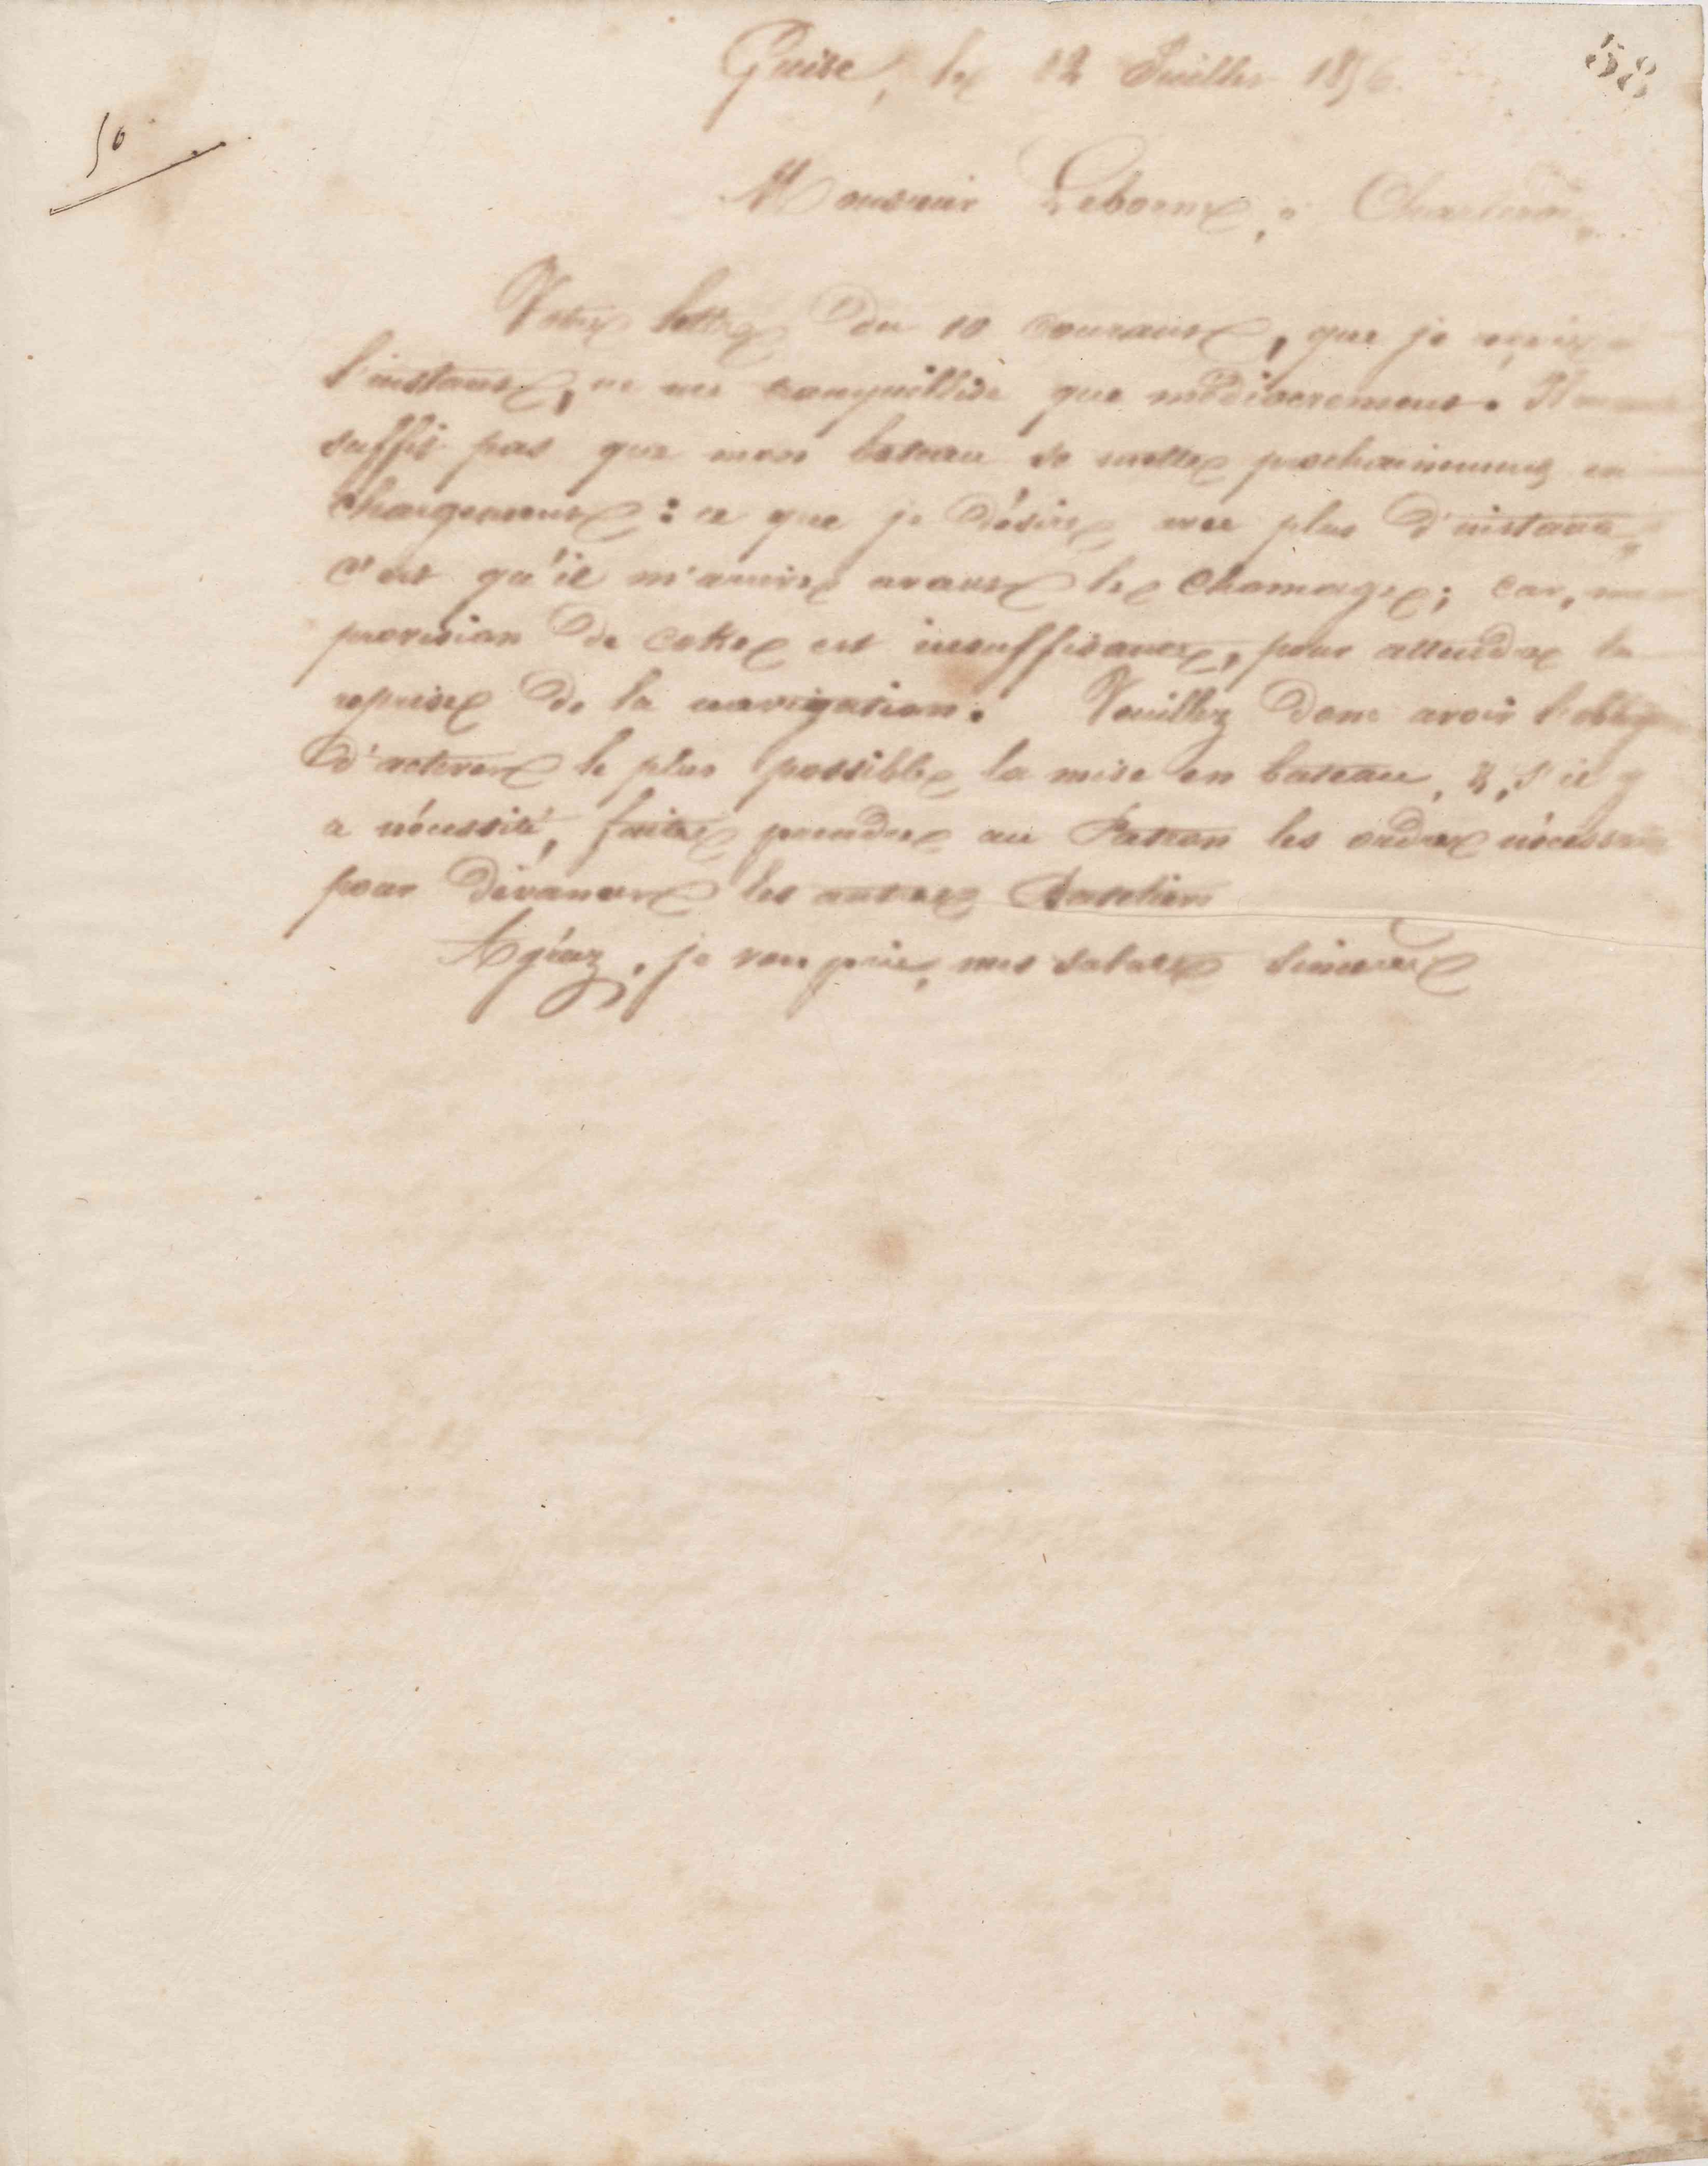 58
50
Guise, le 12 Juillet 1856.
Monsieur Leboeuf, à Charleroi,
Votre lettre du 10 courant, que je reçois à
l'instant, ne me tranquillise que médiocrement. Il
suffit pas que mon bateau se mette prochainement en
chargement : ce que je désire avec plus d'instance,
c'est qu'il m'arrive avant le chomage ; car, ma
provision de coke est insuffisante, pour attendre la
reprise de la navigation. Veuillez donc avoir
d'activer le plus possible la mise en bateau, &, s'il y
a nécessité, faites prendre au Patron les ordres
pour devancer les autres Bateliers
Agréez, je vous prie, mes salutations sincères